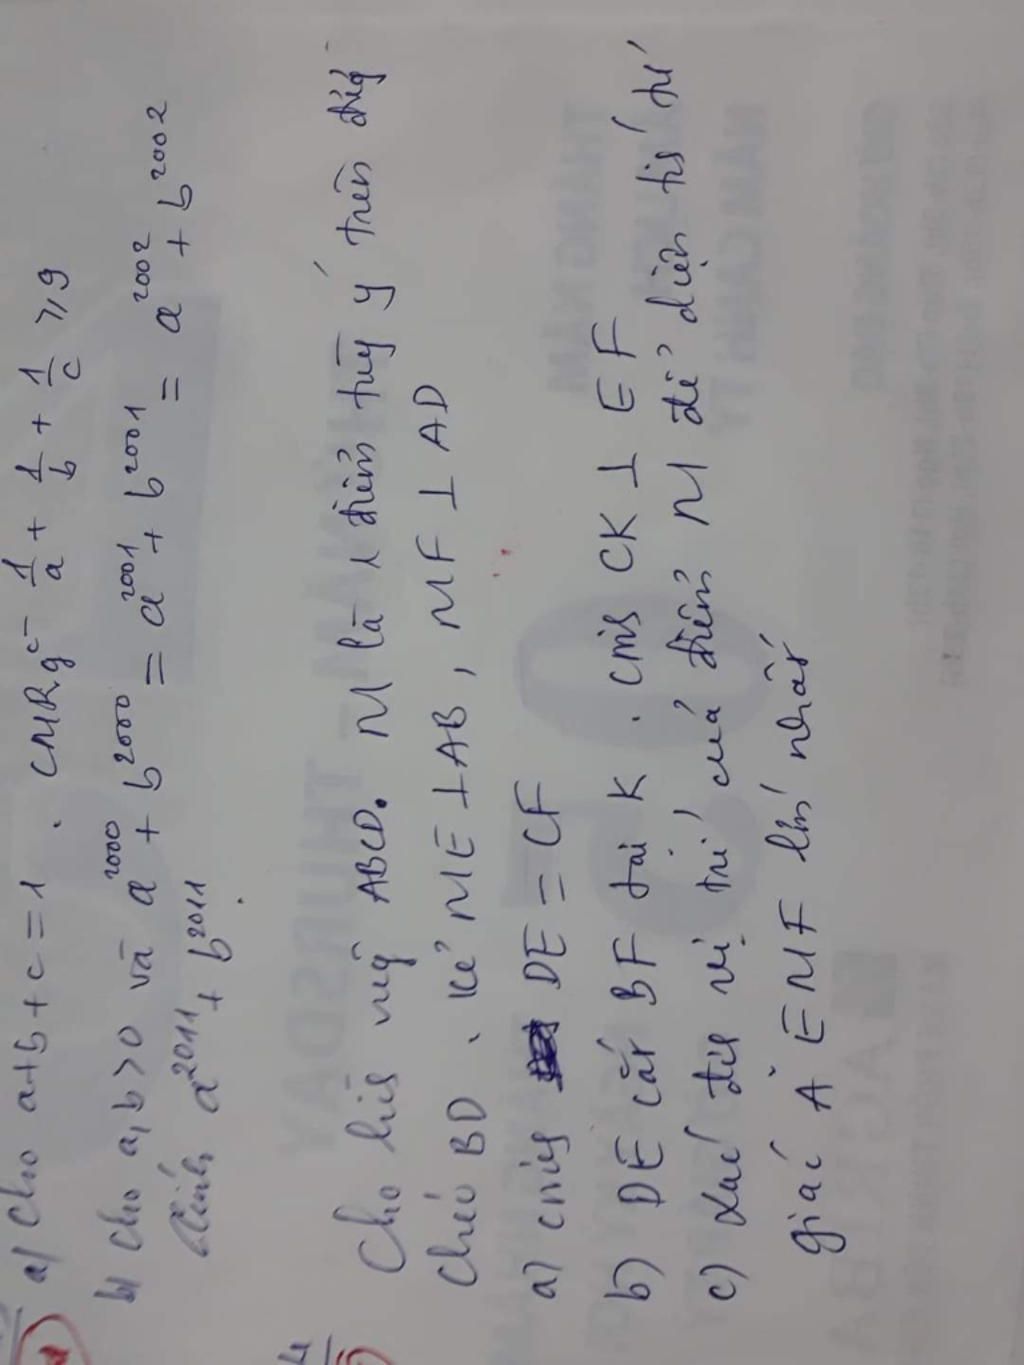 a) Cho a+b+c=1. CMRg 1/a + 1/b + 1/c ≥ 9
b) Cho a,b>0 và a^2000 + b^2000 = a^2001 + b^2001 = a^2002 + b^2002
Tính a^2011 + b^2011
Cho ABCD. M là 1 điểm tùy ý trên
chéo BD. Kẻ ME ⊥ AB, MF ⊥ AD
a) DE = CF
b) DE cắt BF tại K. CK ⊥ EF
c) Xác vị trí của điểm M để diện tí
giác AEMF lớn nhất